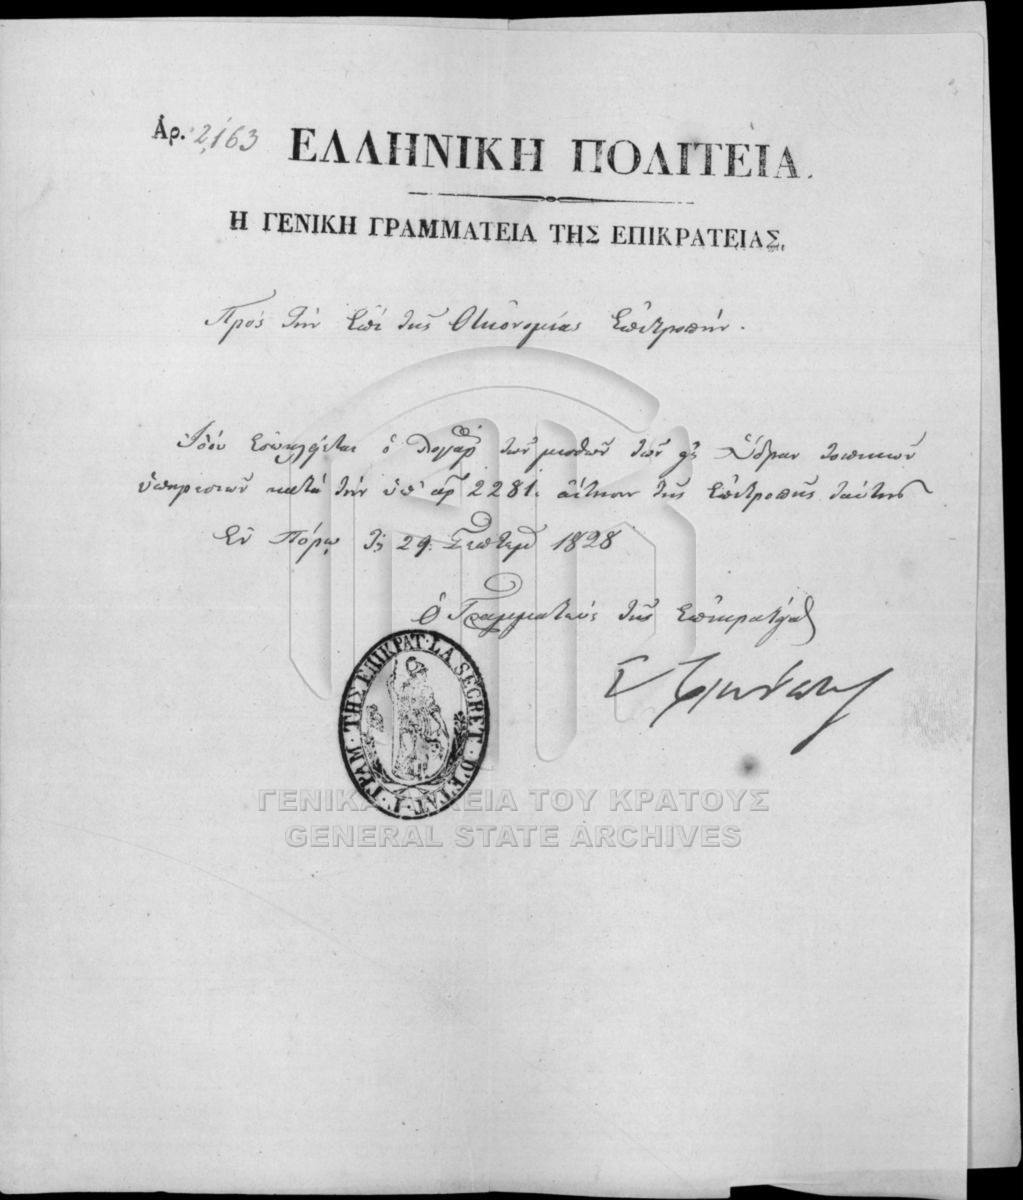 Ἀρ. 2,163 ΕΛΛΗΝΙΚΗ ΠΟΛΙΤΕΙΑ.
Η ΓΕΝΙΚΗ ΓΡΑΜΜΑΤΕΙΑ ΤΗΣ ΕΠΙΚΡΑΤΕΙΑΣ.
Πρός τὴν ἐπὶ τῆς Οἰκονομίας Ἐπιτροπήν.
Ἰδού ἐσωκλείεται ὁ λογαρ τῶν μισθῶν τῶν εἰς Ὕδραν τοπικῶν
ὑπηρεσιῶν κατὰ τὴν ὑπ' ἀρ 2281. αἴτησιν τῆς Ἐπιτροπῆς ταύτης
Ἐν Πόρῳ τῇ 29. Σεπτεμ 1828
Ὁ Γραμματεύς τῆς Ἐπικρατείας
Γ. ΓΡΑΜ. ΤΗΣ ΕΠΙΚΡΑΤ. LA SECRET. D'ETAT.
ΓΕΝΙΚΑ ΑΡΧΕΙΑ ΤΟΥ ΚΡΑΤΟΥΣ
GENERAL STATE ARCHIVES